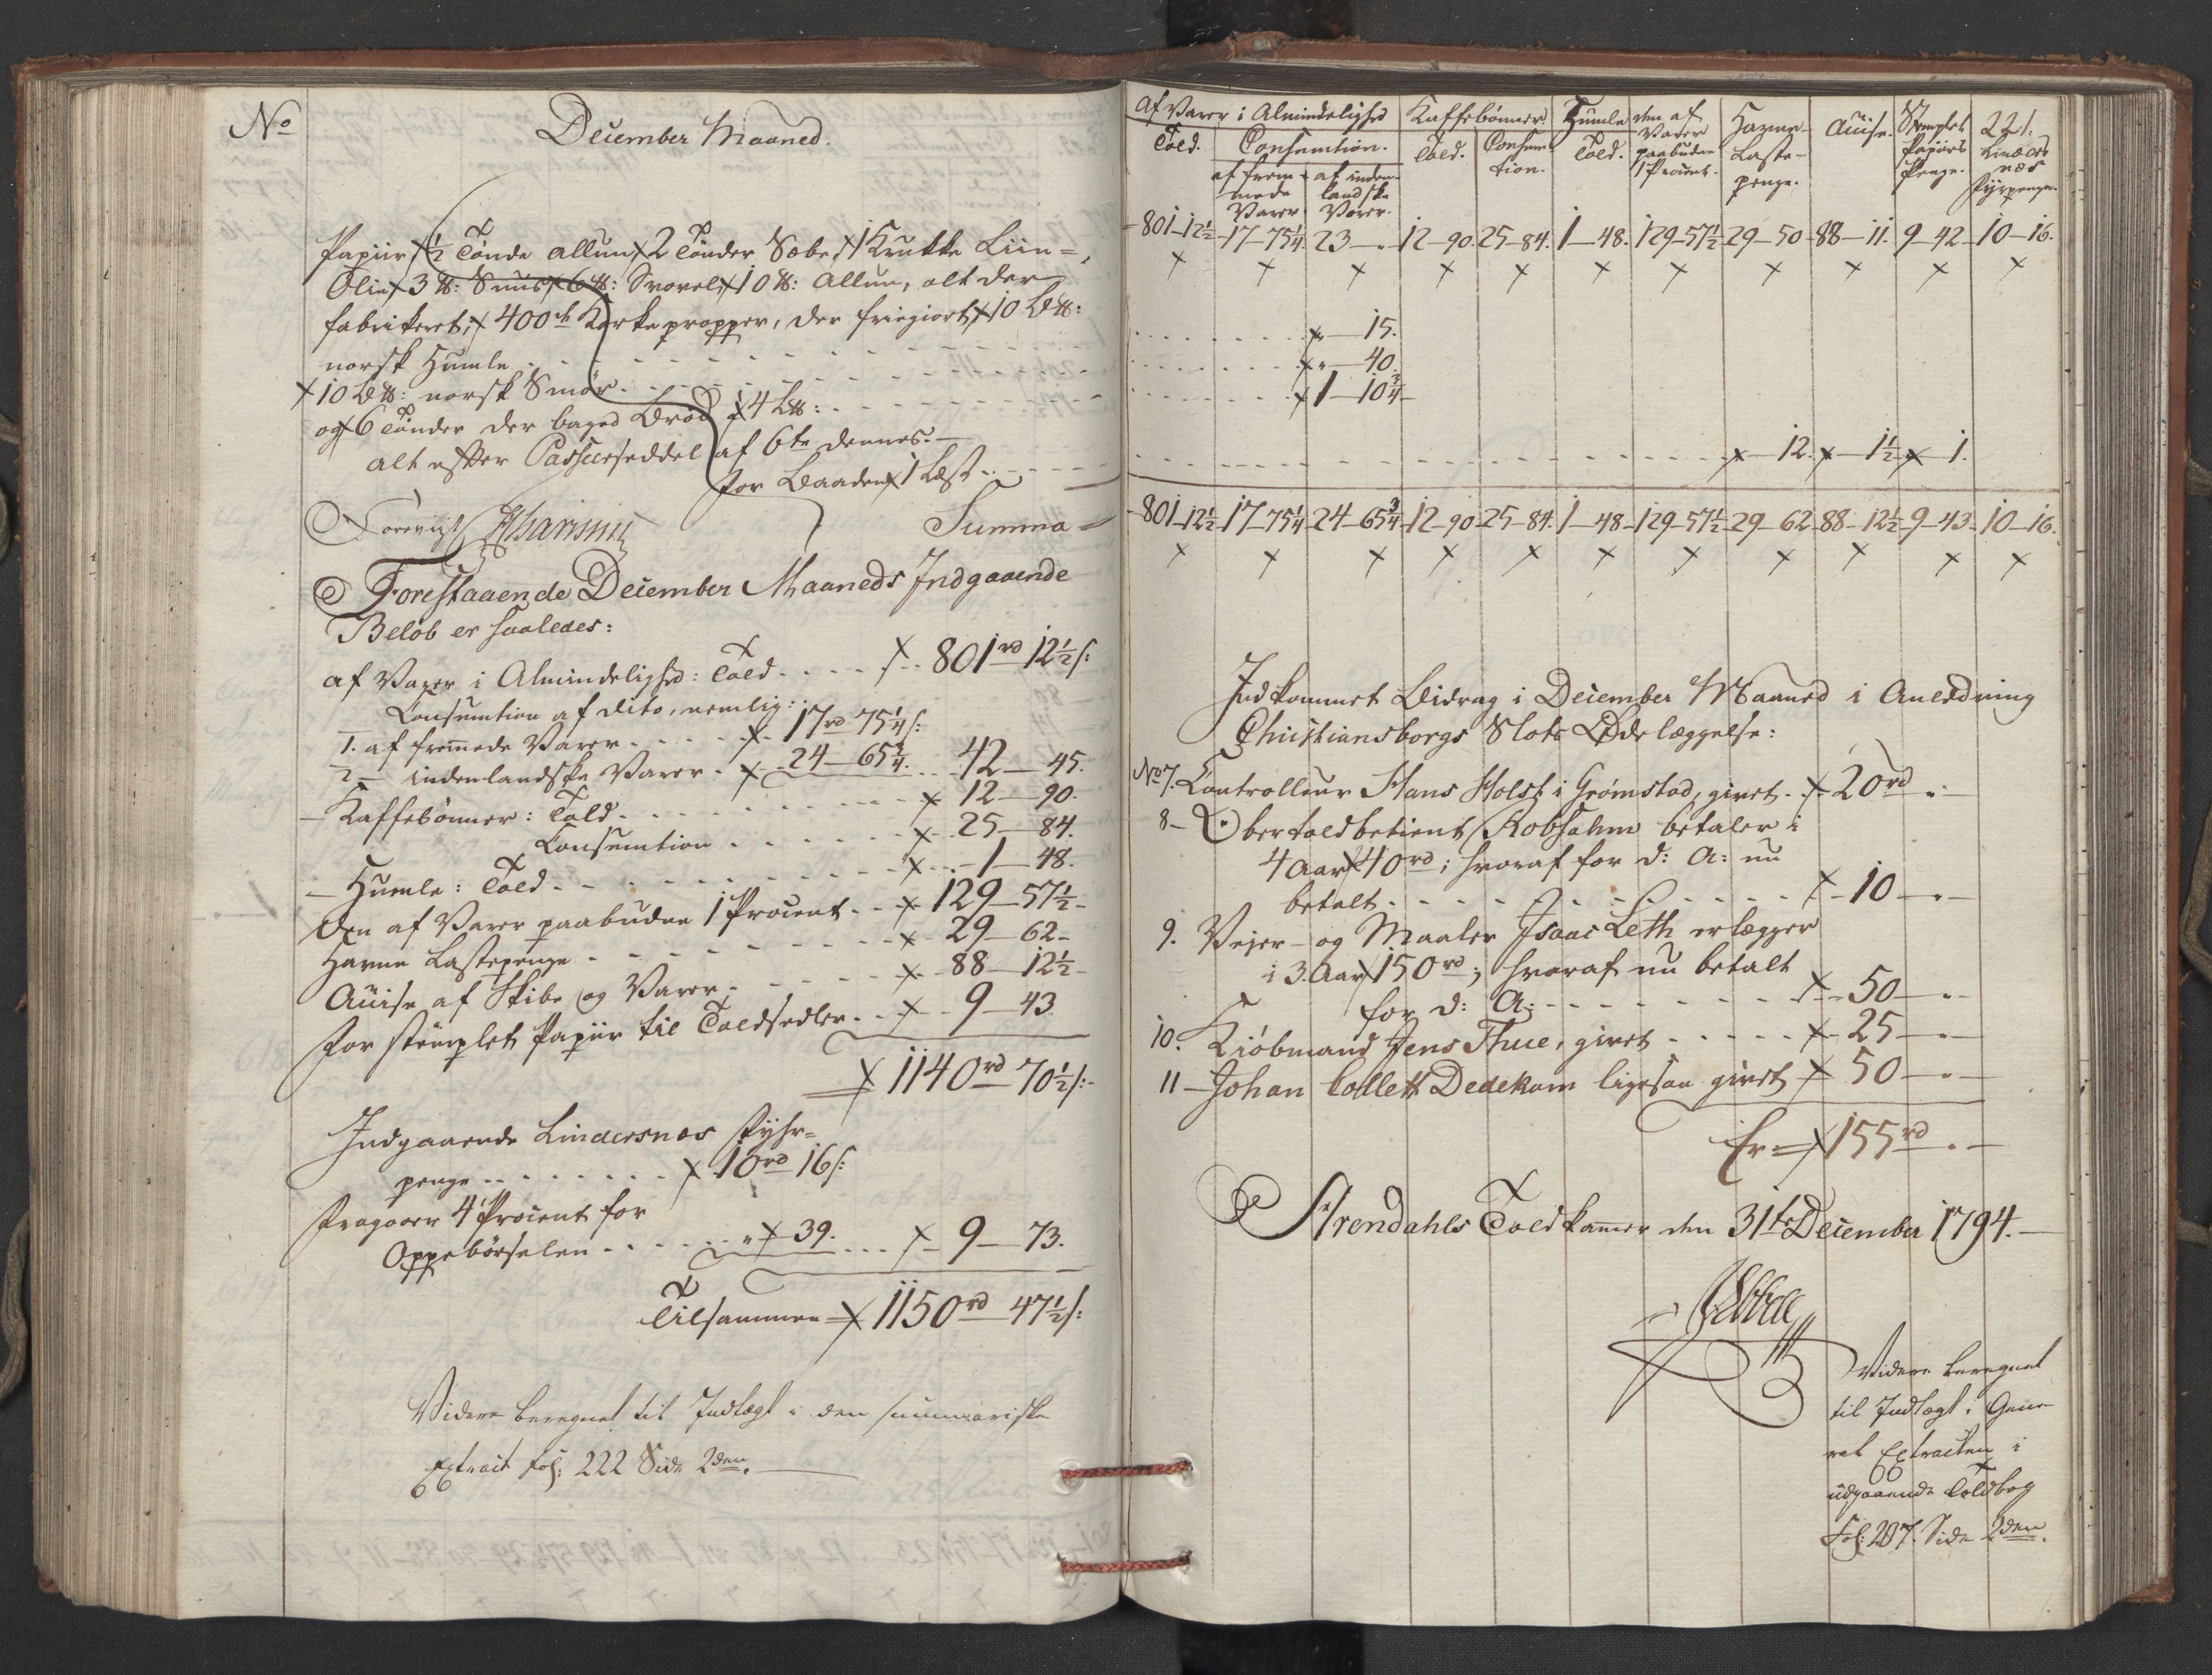 No
December Maaned.
Papiir, ½ Tønde Allun, 2 Tønder Sæbe, 1 Krukke Liin=
Olie, 3 ℔: Snus, 6 ℔: Svovel, 10 ℔: Allun, alt der
fabrikeret; 400 st Korkepropper, der friegiort, 10 B℔:
norsk Humle
10 B℔: norsk Smør
og 6 Tønder der baged Brød á 4 L℔:
alt efter Passeerseddel af 6te dennes.
for Baaden 1 Læst
Forevigt
Summa =
Forestaaende December Maaneds Indgaaende
Beløb er saaledes:
af Varer i Almindelighed: Told 801rd 12½ s:
Consumtion af dito, nemlig:
1. af fremmede Varer 17rd 75¼ s:
2 – indenlandske Varer 24–65¾. 42–45.
– Kaffebønner: Told 12–90.
Consumtion 25–84.
– Humle: Told 1–48.
Den af Varer paabudne 1 Procent 129–57½
Havne Lastepenge 29–62
Accise af Skibe og Varer 88–12½
for stemplet Papiir til Toldsedler 9–43.
1140rd 70½ s:
Indgaaende Lindersnæs Fyhr=
penge 10rd 16 s:
fragaaer 4 Procent for
Oppebørselen " 39. 9–73.
Tilsammen = 1150rd 47½ s:
Videre beregnet til Indtægt i den summariske
Extract fol: 222 Side 2den.
Af Varer i Almindelighed Kaffebønner. Humle den af Havne- Accise. Stemplet 221.
Told. Consumtion. Told. Consum- Told. Varer Laste- Papiirs Linders
af frem- af inden- tion. paabudne penge. Penge. næs
mede landske 1 Procent. Fyrpenge.
Varer. Varer.
801–12½ 17–75¼ 23–" 12–90. 25–84. 1–48. 129–57½ 29–50 88–11. 9–42 10–16.
" 15.
" 40.
1–10¾
12. 1½ 1.
801–12½ 17–75¼ 24–65¾ 12–90 25–84. 1–48 129–57½ 29–62 88–12½ 9–43 10–16.
Indkommet Bidrag i December Maaned i Anledning
Christiansborgs Slots Ødelæggelse:
No 7. Controlleur Hans Holst i Grømstad, givet 20rd "
8 – Overtoldbetient Robsahm betaler i
4 Aar 40rd; hvoraf for d: A: nu
betalt 10 – "
9. Vejer- og Maaler Isaac Leth erlægger
i 3. Aar 150rd; hvoraf nu betalt
for d: A: 50 – "
10. Kiøbmand Jens Thue, givet 25 – "
11 – Johan Collett Dedekam ligesaa givet 50 – "
Er = 155rd "
Arendahls Toldkamer den 31te December 1794.
Videre beregnet
til Indtægt i Gene
ral Extracten i
udgaaende Toldbog
Fol: 207. Side 2den.